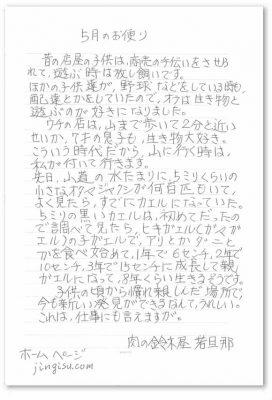 5月のお便り
昔の店屋の子供は、家の手伝いをさせら
れて、遊ぶ時は放し飼いです。
ほかの子供達が、野球などをしている時も、
配達とかをしていたので、オラは生き物と
遊ぶのが好きになりました。
ウチの店は、山まで歩いて2分と近い
せいか、7才の息子も、生き物大好き。
こういう時代だから、山に行く時は、
私が付いて行きます。
先日、山道の水たまりに、5ミリくらいの
小さなオタマジャクシが何百匹もいて、
よく見たら、すでにカエルになっていた。
5ミリの黒いカエルは、初めてだったの
で調べて見たら、ヒキガエル(ガマガ
エル)の子ガエルで、アリとかダニと
かを食べ始めて、1年で6センチ、2年で
10センチ、3年で15センチに成長して親
ガエルになって、8年くらい生きるそうです。
子供の頃から慣れ親しんだ場所で、
今も新しい発見ができるなんて、うれしい。
これは、仕事にも言えますが。
肉の鈴木屋 若旦那
ホームページ
jingisu.com